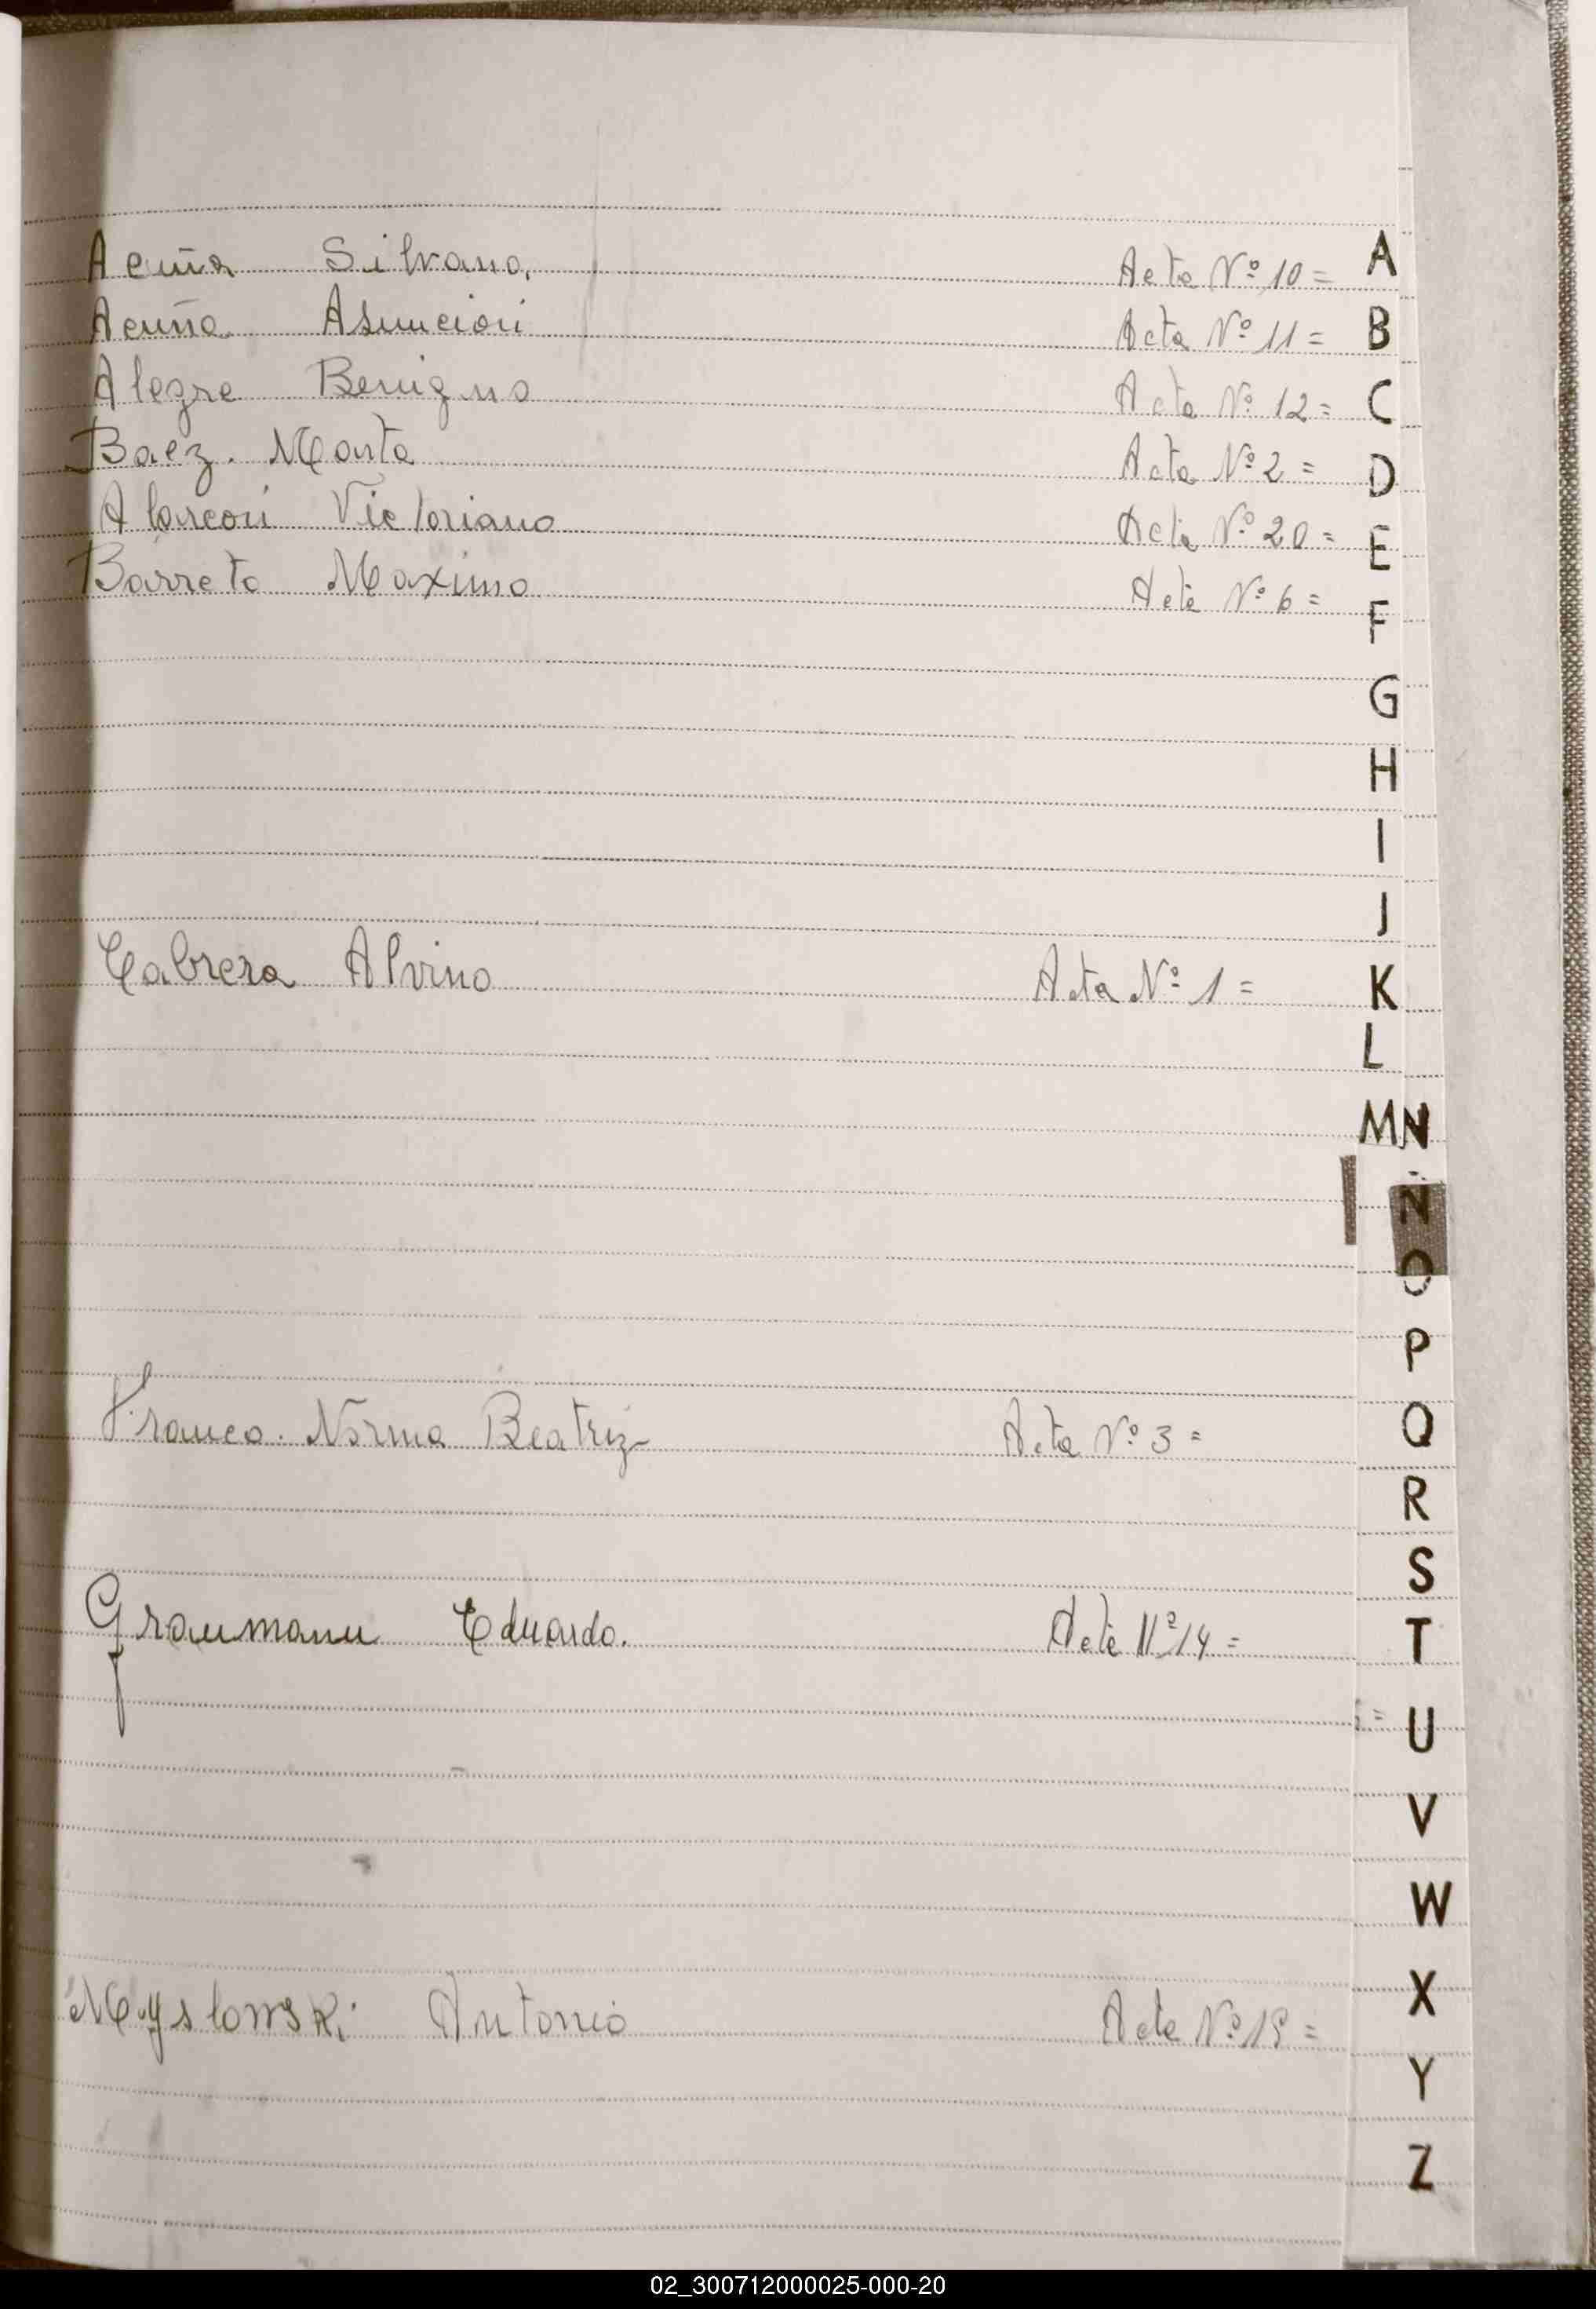 Acuña Silvano. Acta Nº 10 = A
Acuña Asunción Acta Nº 11 = B
Alegre Benigno Acta Nº 12 = C
Baez. Marta Acta Nº 2 = D
Alarcón Victoriano Acta Nº 20 = E
Barreto Maximo Acta Nº 6 = F
G
H
I
J
Cabrera Alvino Acta Nº 1 = K
L
M N
Ñ
O
P
Franco. Norma Beatriz Acta Nº 3 = Q
R
S
Graumann Eduardo. Acta Nº 14 = T
U
V
W
X
Myslowski Antonio Acta Nº 19 =
Y
Z
02_300712000025-000-20